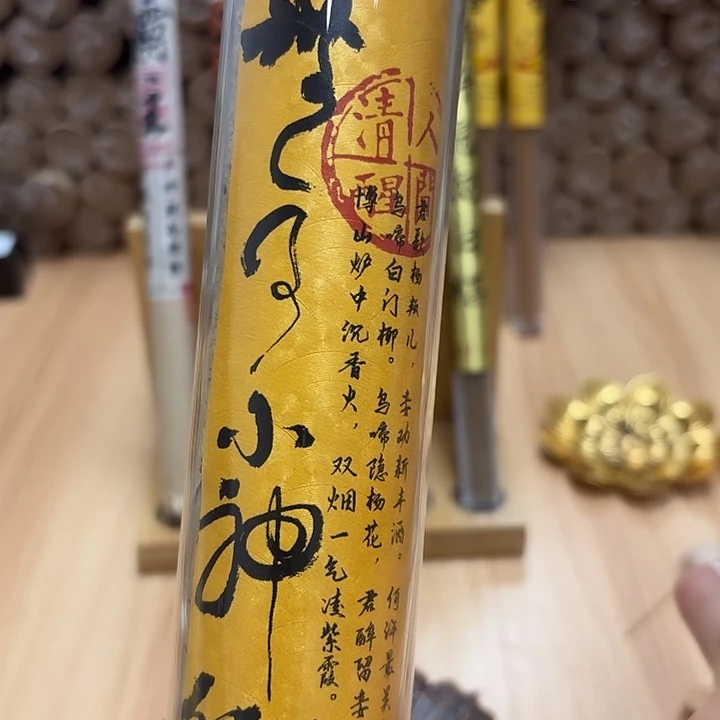 人間
清醒
君歌杨叛儿，妾劝新丰酒。何许最关
乌啼白门柳。乌啼隐杨花，君醉留妾
博山炉中沉香火，双烟一气凌紫霞。
事小神